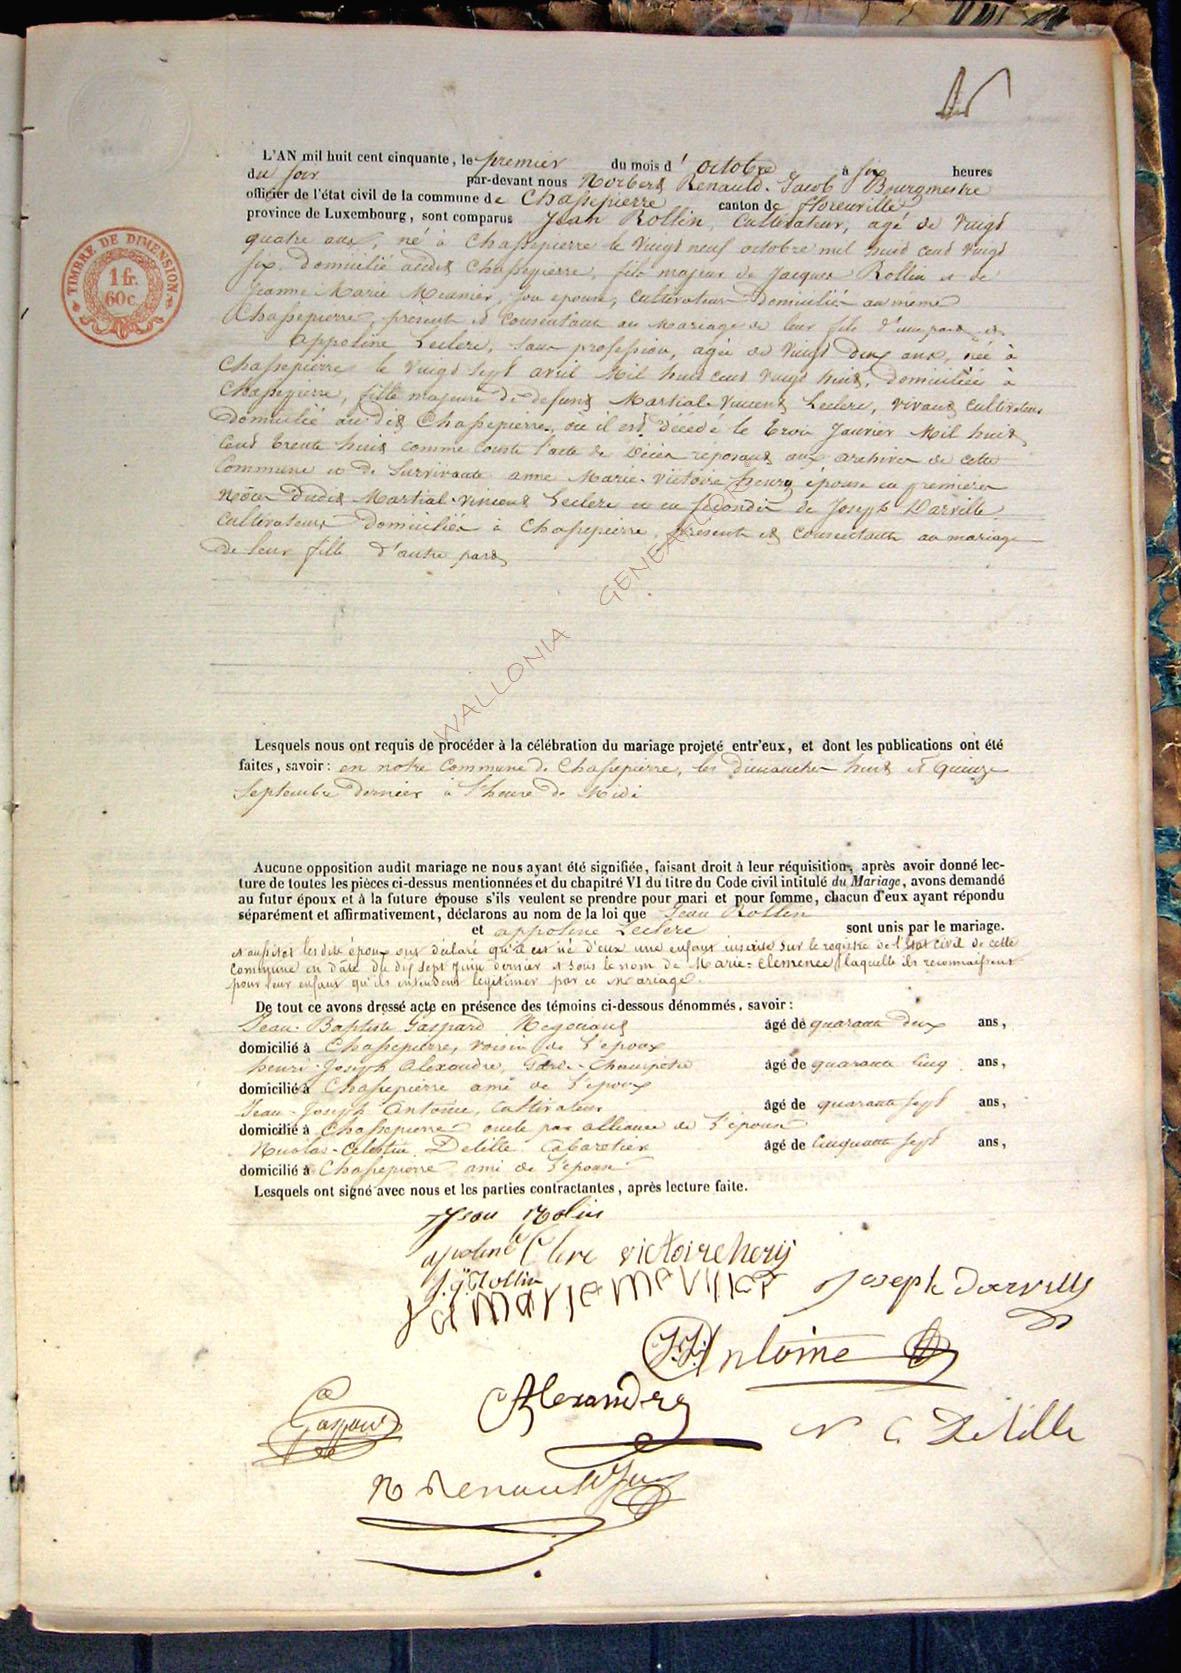 L'AN mil huit cent cinquante, le premier du mois d' octobre à six heures
du soir par-devant nous Norbert Renauld-Jacob Bourgmestre
officier de l'état civil de la commune de Chassepierre canton de florenville
province de Luxembourg, sont comparus Jean Rollin, Cultivateur, agé de vingt
quatre ans, né à Chassepierre le vingt neuf octobre mil huit cent vingt
six, domicilié audit Chassepierre, fils majeur de Jacques Rollin et de
Jeanne Marie Meunier, son épouse, cultivateurs domiciliés au même
Chassepierre, présent et consentant au Mariage de leur fils d'une part et
Appoline Leclere, sans profession, agée de vingt deux ans, née à
Chassepierre le vingt sept avril Mil huit cent vingt huit, domiciliée à
Chassepierre, fille majeure de defunt Martial-Vincent Leclere, vivant cultivateur
domicilié au dit Chassepierre, où il est décédé le trois Janvier Mil huit
cent trente huit comme conste l'acte de Décès reposant aux archives de cette
Commune et de Survivante anne Marie-Victoire henry épouse en premieres
Nôces dudit Martial-Vincent Leclere et en secondes de Joseph Darville
cultivateurs domiciliés à Chassepierre, présent et consentants au mariage
de leur fille d'autre part
Lesquels nous ont requis de procéder à la célébration du mariage projeté entr'eux, et dont les publications ont été
faites, savoir: en notre Commune de Chassepierre, les dimanches huit et quinze
Septembre dernier à l'heure de Midi
Aucune opposition audit mariage ne nous ayant été signifiée, faisant droit à leur réquisition, après avoir donné lec-
ture de toutes les pièces ci-dessus mentionnées et du chapitré VI du titre du Code civil intitulé du Mariage, avons demandé
au futur époux et à la future épouse s'ils veulent se prendre pour mari et pour femme, chacun d'eux ayant répondu
séparément et affirmativement, déclarons au nom de la loi que Jean Rollin
et appoline Leclere sont unis par le mariage.
et aussitot lesdits époux ont déclaré qu'il est né d'eux une enfant inscrite sur le registre de l'état civil de cette
Commune en date du dix sept Juin dernier et sous le nom de Marie-Clemence, laquelle ils reconnaissent
pour leur enfant qu'ils entendent legitimer par ce Mariage.
De tout ce avons dressé acte en présence des témoins ci-dessous dénommés, savoir:
Jean-Baptiste Gaspard Negociant âgé de quarante deux ans,
domicilié à Chassepierre, voisin de l'epoux
henri-Joseph Alexandre, Garde-Champetre âgé de quarante cinq ans,
domicilié à Chassepierre ami de l'epoux
Jean-Joseph Antoine, cultivateur âgé de quarante sept ans,
domicilié à Chassepierre oncle par alliance de l'épouse
Nicolas-Celestin Delille Cabaretier âgé de Cinquante sept ans,
domicilié à Chassepierre ami de l'épouse
Lesquels ont signé avec nous et les parties contractantes, après lecture faite.
Jean Rolin
apoline le Clere victoire henry
J. J. Rollin
Joseph Darville
J.J. Antoine
Alexandre
Gaspard
N C Delille
N Renauld Ja
TIMBRE DE DIMENSION
1 fr.
60 c.
WALLONIA GENEALOGY